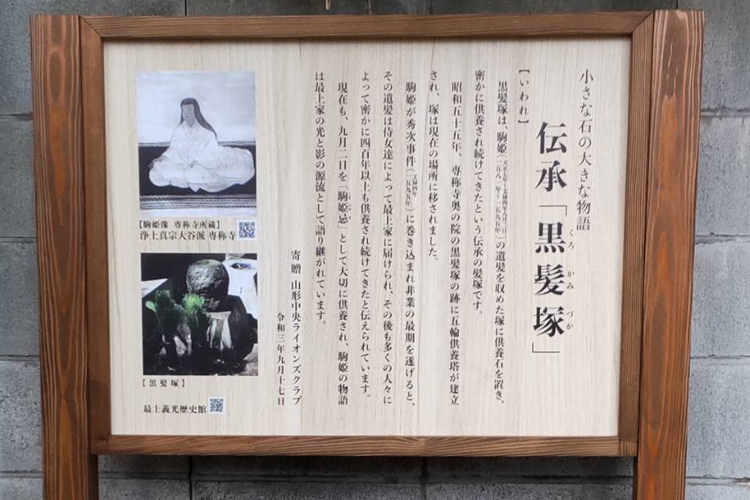 小さな石の大きな物語
伝承「黒髪塚」
くろ かみ づか
【いわれ】
黒髪塚は、駒姫(天正九年~文禄四年八月二日)(一五八一年~一五九五年)の遺髪を収めた塚に供養石を置き、
密かに供養され続けてきたという伝承の髪塚です。
昭和五十五年、専称寺奥の院の黒髪塚の跡に五輪供養塔が建立
され、塚は現在の場所に移されました。
駒姫が秀次事件(文禄四年)(一五九五年)に巻き込まれ非業の最期を遂げると、
その遺髪は侍女達によって最上家に届けられ、その後も多くの人々に
よって密かに四百年以上も供養され続けてきたと伝えられています。
現在も、九月二日を「駒姫忌」として大切に供養され、駒姫の物語
は最上家の光と影の源流として語り継がれています。
寄贈 山形中央ライオンズクラブ
令和三年九月十七日
【駒姫像 専称寺所蔵】
浄土真宗大谷派 専称寺
【黒髪塚】
最上義光歴史館